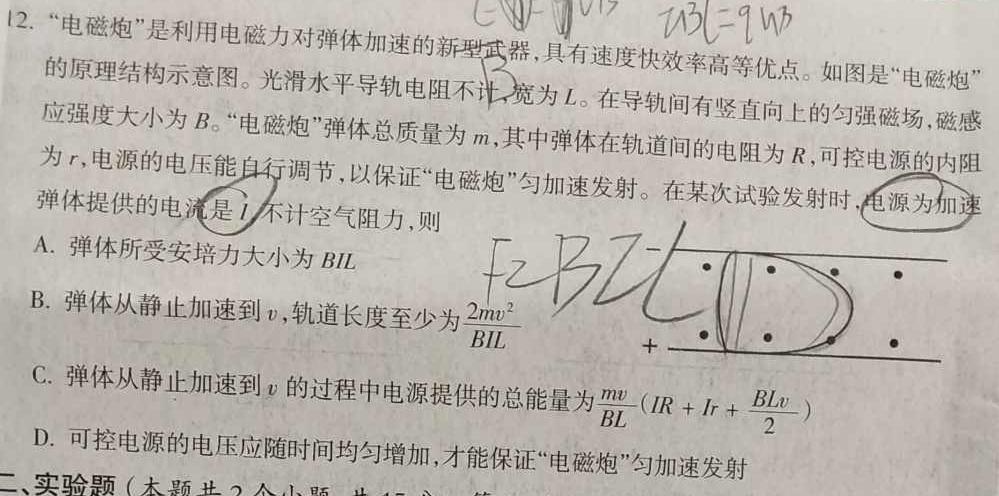 12. “电磁炮”是利用电磁力对弹体加速的新型武器,具有速度快效率高等优点。如图是“电磁炮”
的原理结构示意图。光滑水平导轨电阻不计,宽为 L。在导轨间有竖直向上的匀强磁场,磁感
应强度大小为 B。“电磁炮”弹体总质量为 m,其中弹体在轨道间的电阻为 R,可控电源的内阻
为 r,电源的电压能自行调节,以保证“电磁炮”匀加速发射。在某次试验发射时,电源为加速
弹体提供的电流是 I,不计空气阻力,则
A. 弹体所受安培力大小为 BIL
F=BIL
B. 弹体从静止加速到 v,轨道长度至少为 2mv²/BIL
- +
C. 弹体从静止加速到 v 的过程中电源提供的总能量为 mv/BL (IR + Ir + BLv/2)
D. 可控电源的电压应随时间均匀增加,才能保证“电磁炮”匀加速发射
二、实验题